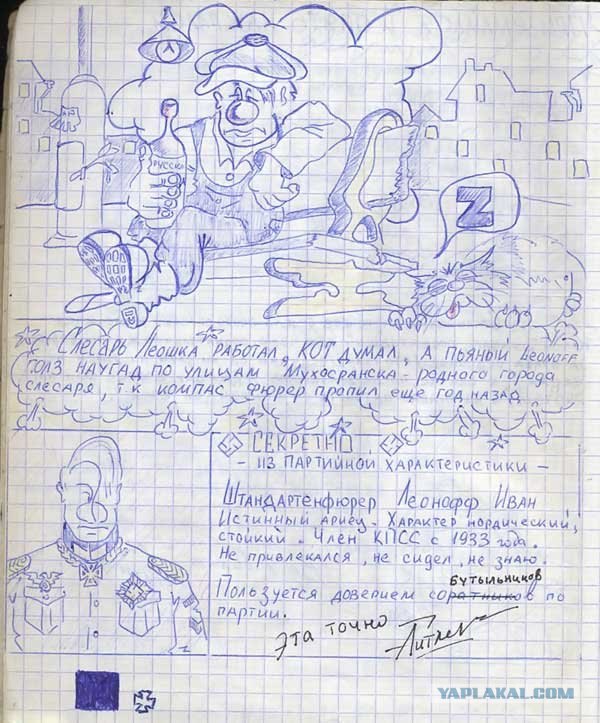 РУССКА
Z
Слесарь Леошка работал, кот думал, а пьяный Leonoff
полз наугад по улицам Мухосранска - родного города
слесаря, т.к компас фюрер пропил еще год назад.
СЕКРЕТНО
- ИЗ ПАРТИЙНОЙ ХАРАКТЕРИСТИКИ -
Штандартенфюрер Леонофф Иван
Истинный ариец. Характер нордический,
стойкий. Член КПСС с 1933 года.
Не привлекался, не сидел, не знаю.
бутыльников
Ползуется доверием соратников по
партии.
Эта точно
YAPLAKAL.COM